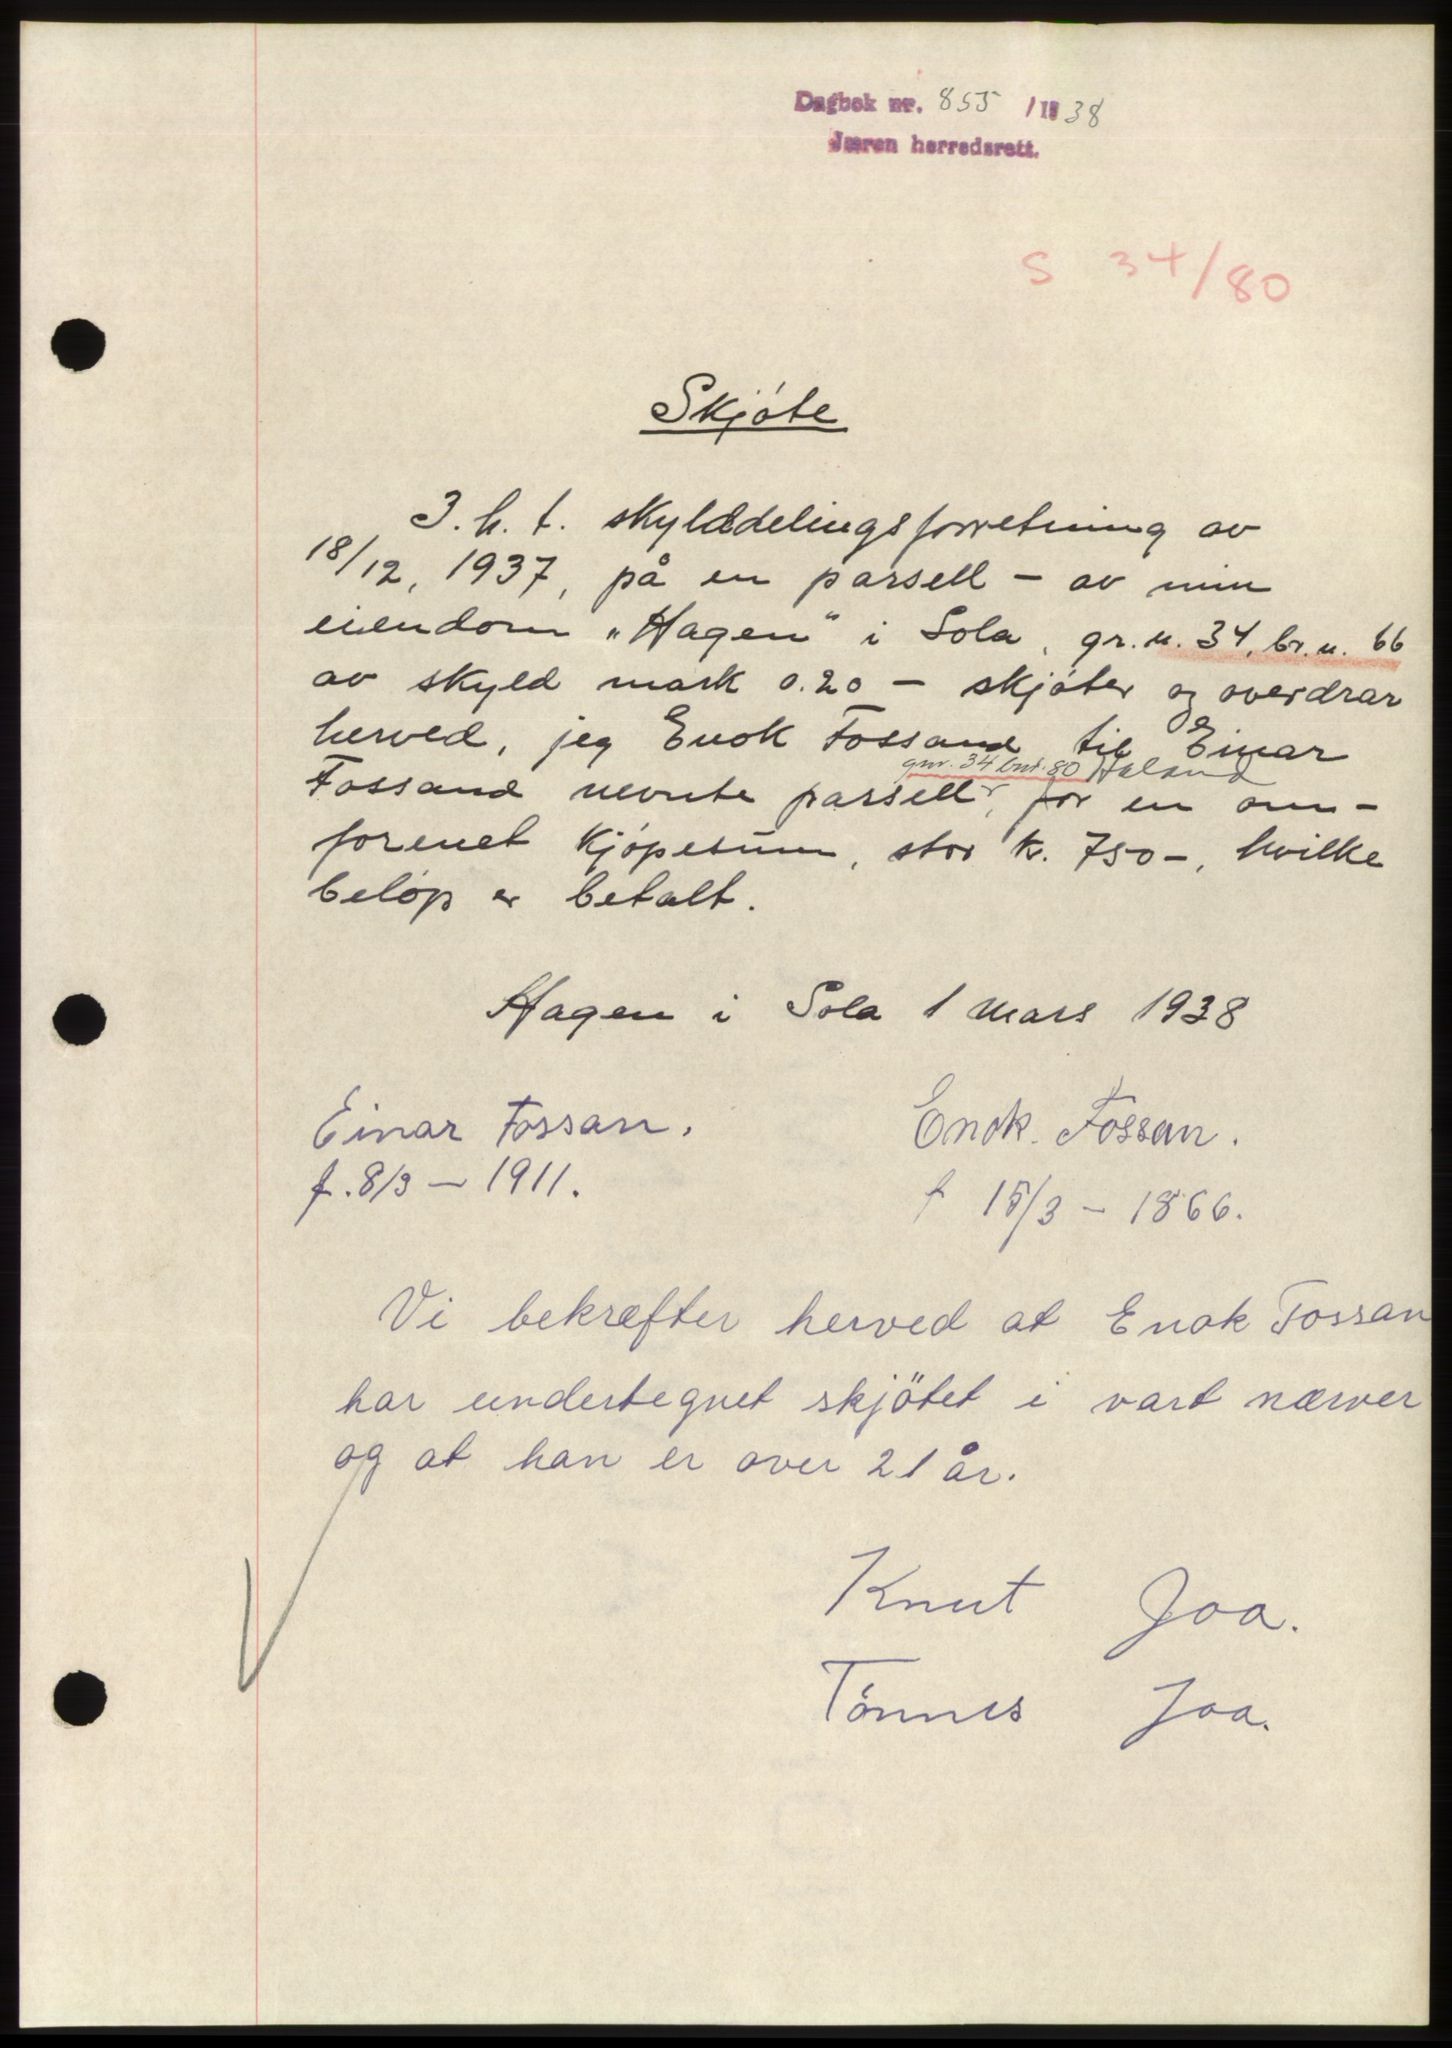 Dagbok nr. 855 /1938
Jæren herredsrett.
S 34/80
Skjóte
I. h. t. skylddelingsforretning av
18/12, 1937, på en parsell - av min
eiendom „Hagen" i Sola, gr. n. 34, br. n. 66
av skyld mark 0.20 - skjóter og overdrar
herved, jeg Enok Fossand til Einar
gnr. 34 bnr. 80 Haland
Fossand nevnte parsell, for en om-
forenet kjópesum, stor kr. 750-, hvilke
belóp er betalt.
Hagen i Sola 1 mars 1938
Einar Fossan.
f. 8/3 - 1911.
Enok. Fossan.
f 15/3 - 1866.
Vi bekræfter herved at Enok Fossan
har undertegnet skjötet i vart nærver
og at han er over 21 år.
Knut Joa.
Tónnes Joa.